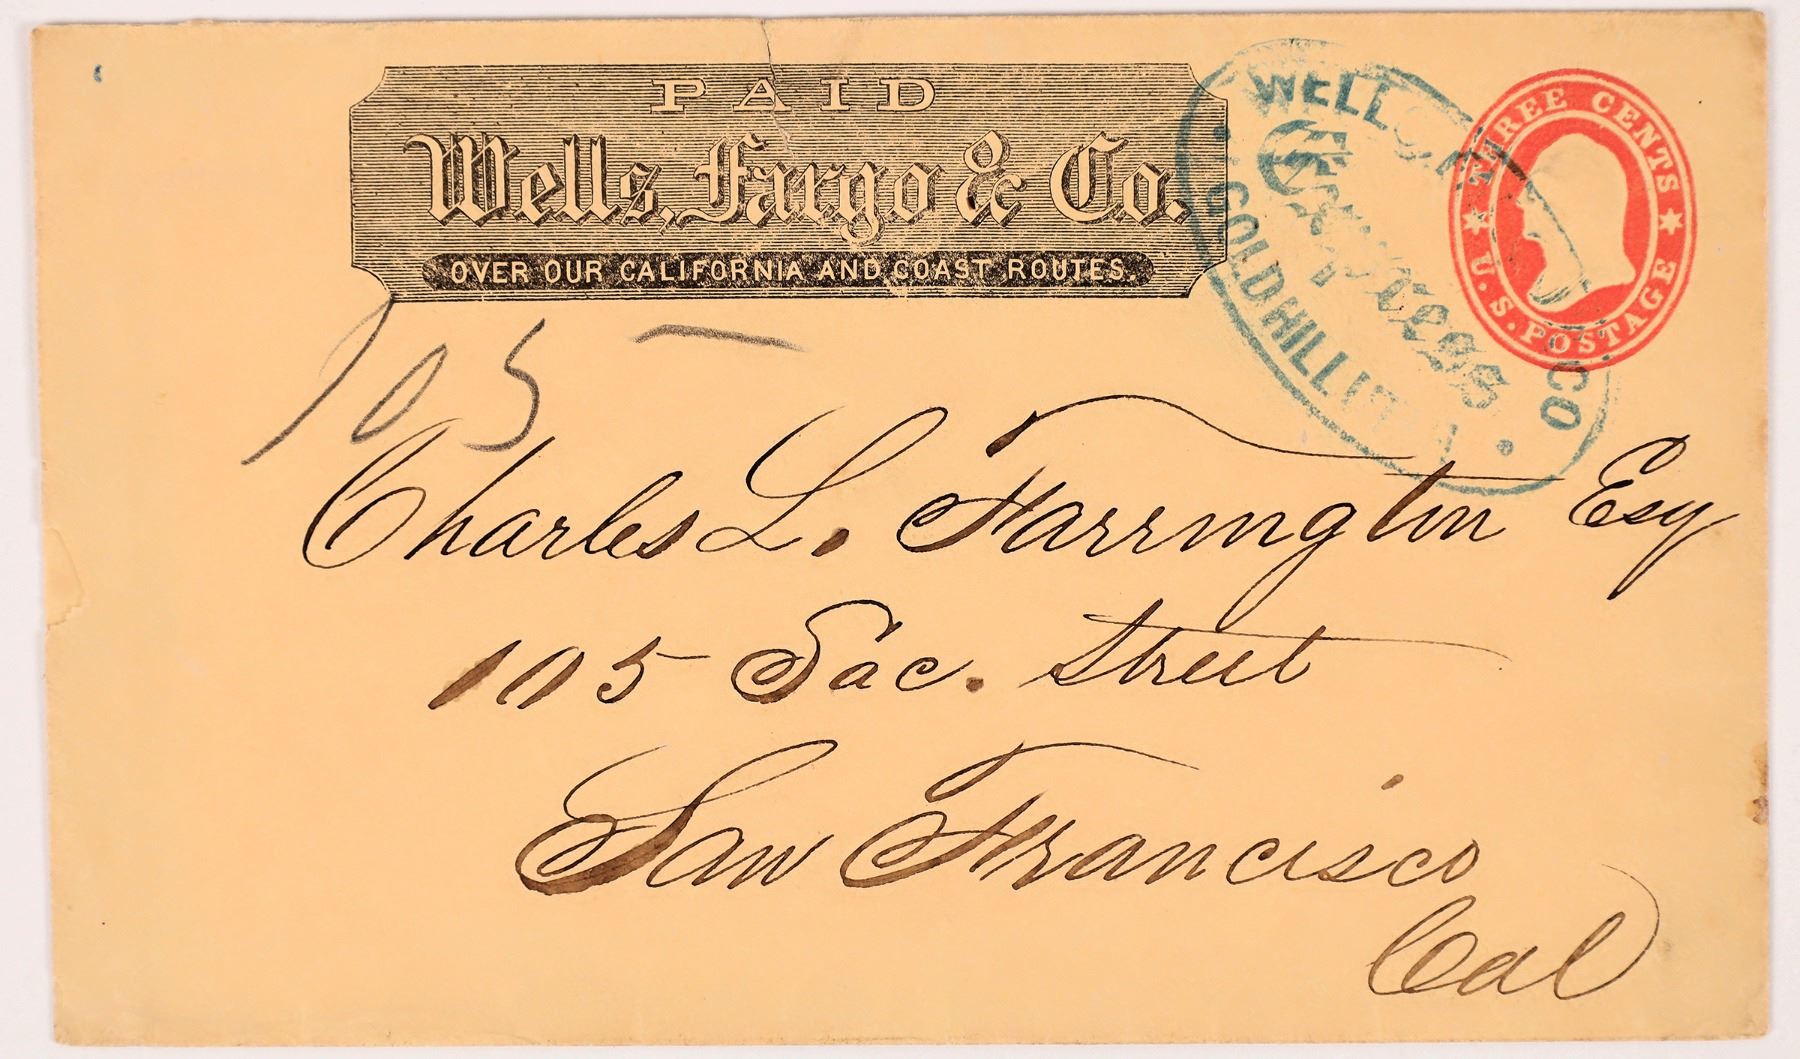 PAID
Wells, Fargo & Co.
OVER OUR CALIFORNIA AND COAST ROUTES.
WELLS CO
Express
GOLD HILL
THREE CENTS
U.S. POSTAGE
105
Charles L. Farrington Esq
105 Sac. Street
San Francisco
Cal